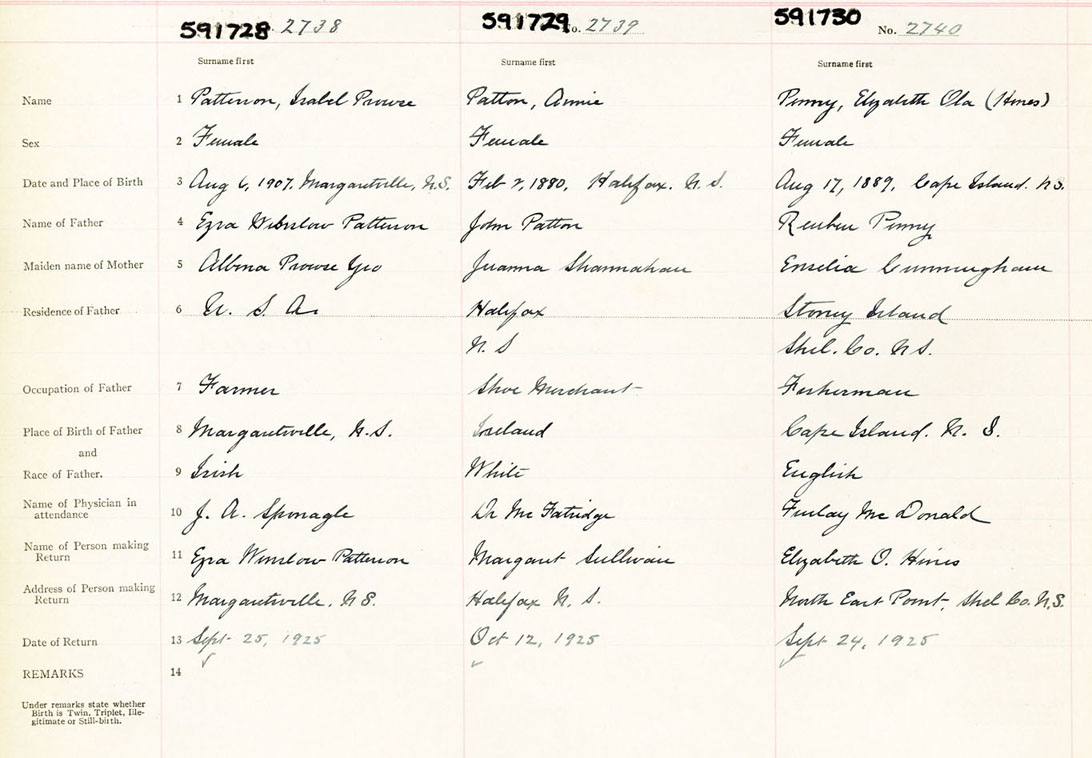 591728 2738 591729 No. 2739 591730 No. 2740
Surname first Surname first Surname first
Name 1 Patterson, Isabel Prowse Patton, Annie Penny, Elizabeth Ola (Hines)
Sex 2 Female Female Female
Date and Place of Birth 3 Aug 6, 1907, Margaretville, N.S. Feb 2, 1880, Halifax. N. S. Aug 17, 1889, Cape Island. N.S.
Name of Father 4 Ezra Winslow Patterson John Patton Reuben Penny
Maiden name of Mother 5 Albena Prowse Yeo Juanna Shannahan Enselia Cunningham
Residence of Father 6 U. S. A. Halifax Stoney Island
N. S Shel. Co. N S.
Occupation of Father 7 Farmer Shoe Merchant Fisherman
Place of Birth of Father 8 Margaretville, N.S. Ireland Cape Island. N. S.
and
Race of Father. 9 Irish White English
Name of Physician in
attendance 10 J. A. Sponagle Dr Mc Fatridge Finlay Mc Donald
Name of Person making
Return 11 Ezra Winslow Patterson Margaret Sullivan Elizabeth O. Hines
Address of Person making
Return 12 Margaretville. N S. Halifax N. S. North East Point, Shel Co. N.S.
Date of Return 13 Sept 25, 1925 Oct 12, 1925 Sept 24, 1925
REMARKS 14
Under remarks state whether
Birth is Twin, Triplet, Ille-
gitimate or Still-birth.